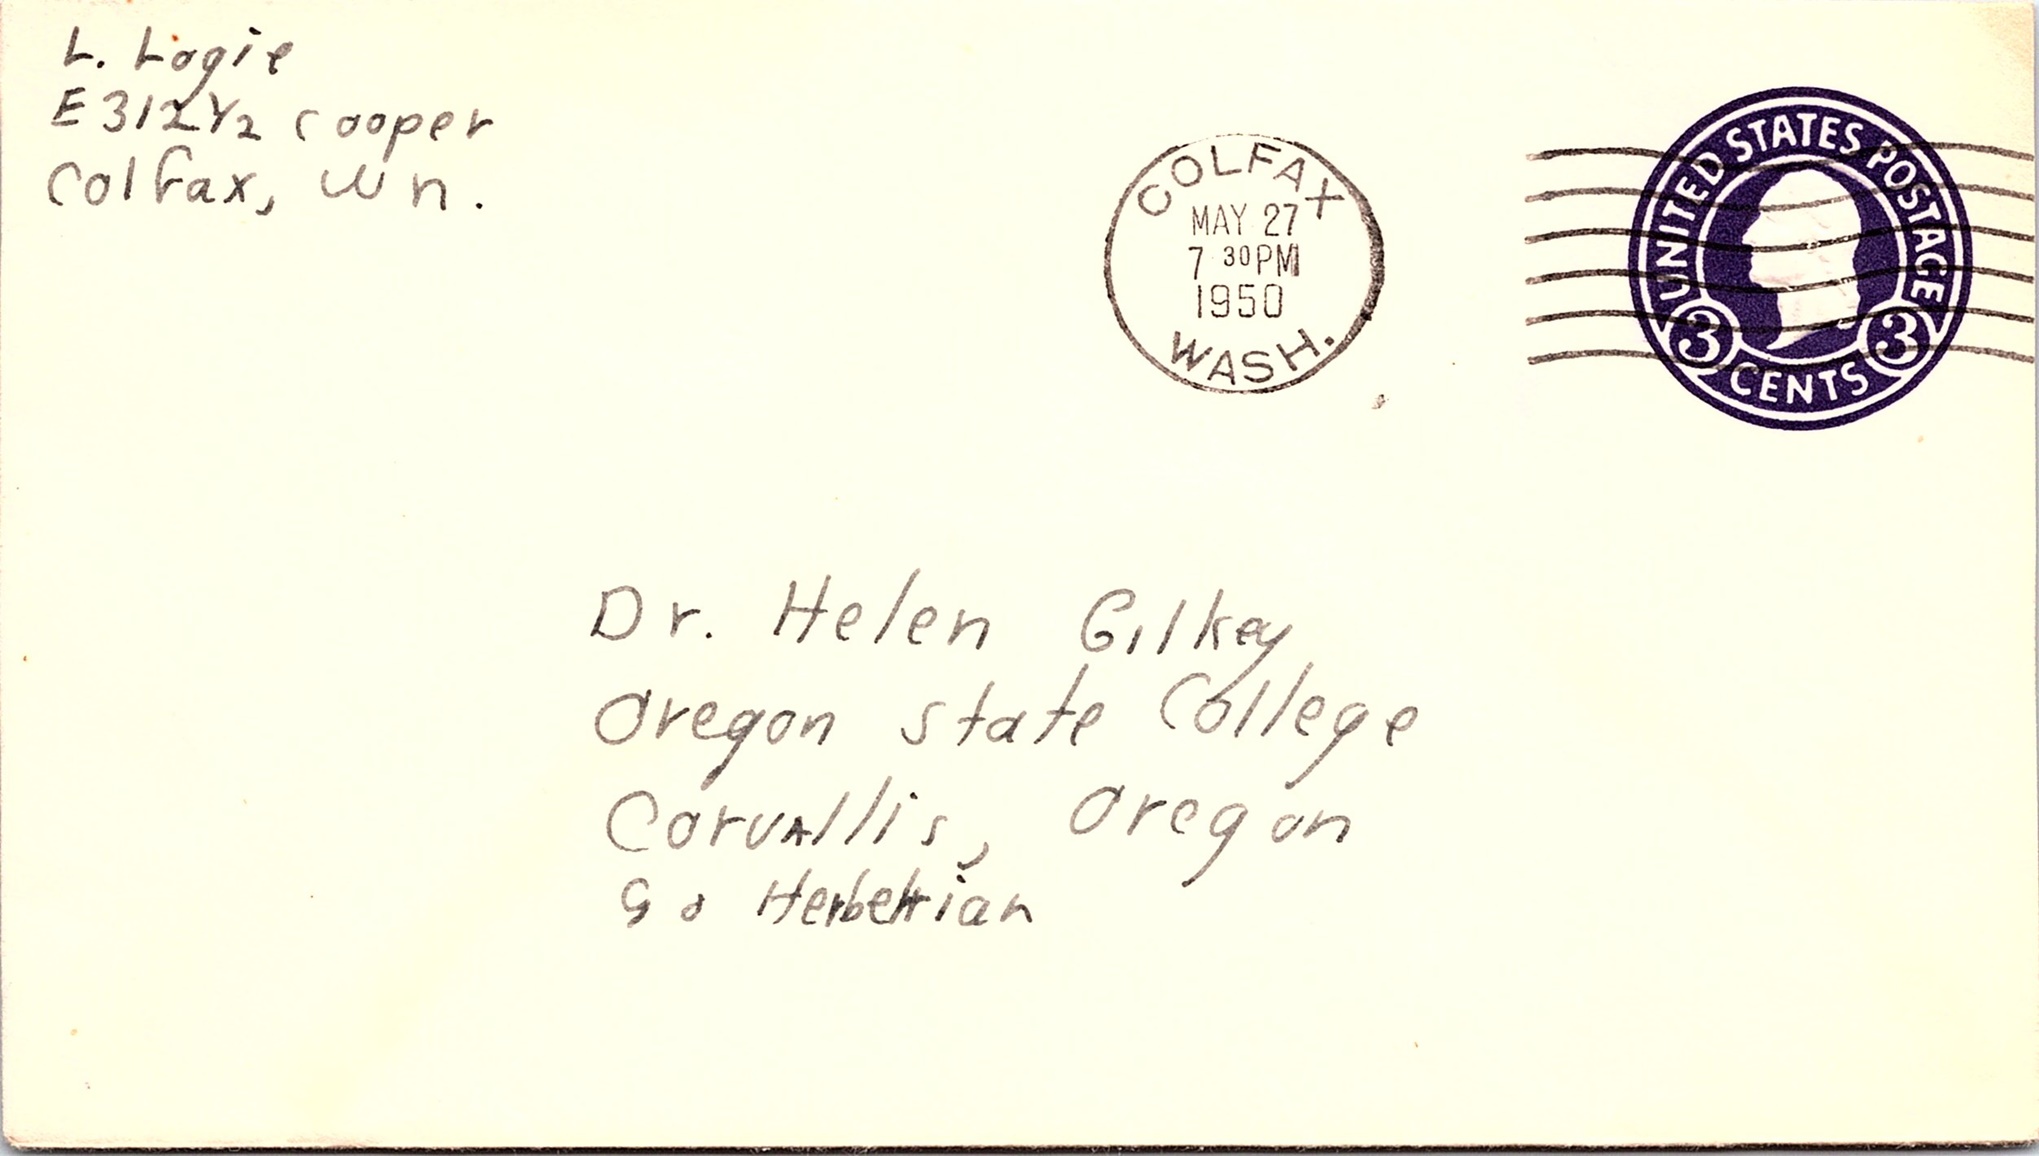 L. Logie
E 312 1/2 Cooper
Colfax, Wn.
COLFAX
MAY 27
7 30 PM
1950
WASH.
UNITED STATES POSTAGE
3 CENTS 3
Dr. Helen Gilkey
Oregon State College
Corvallis, Oregon